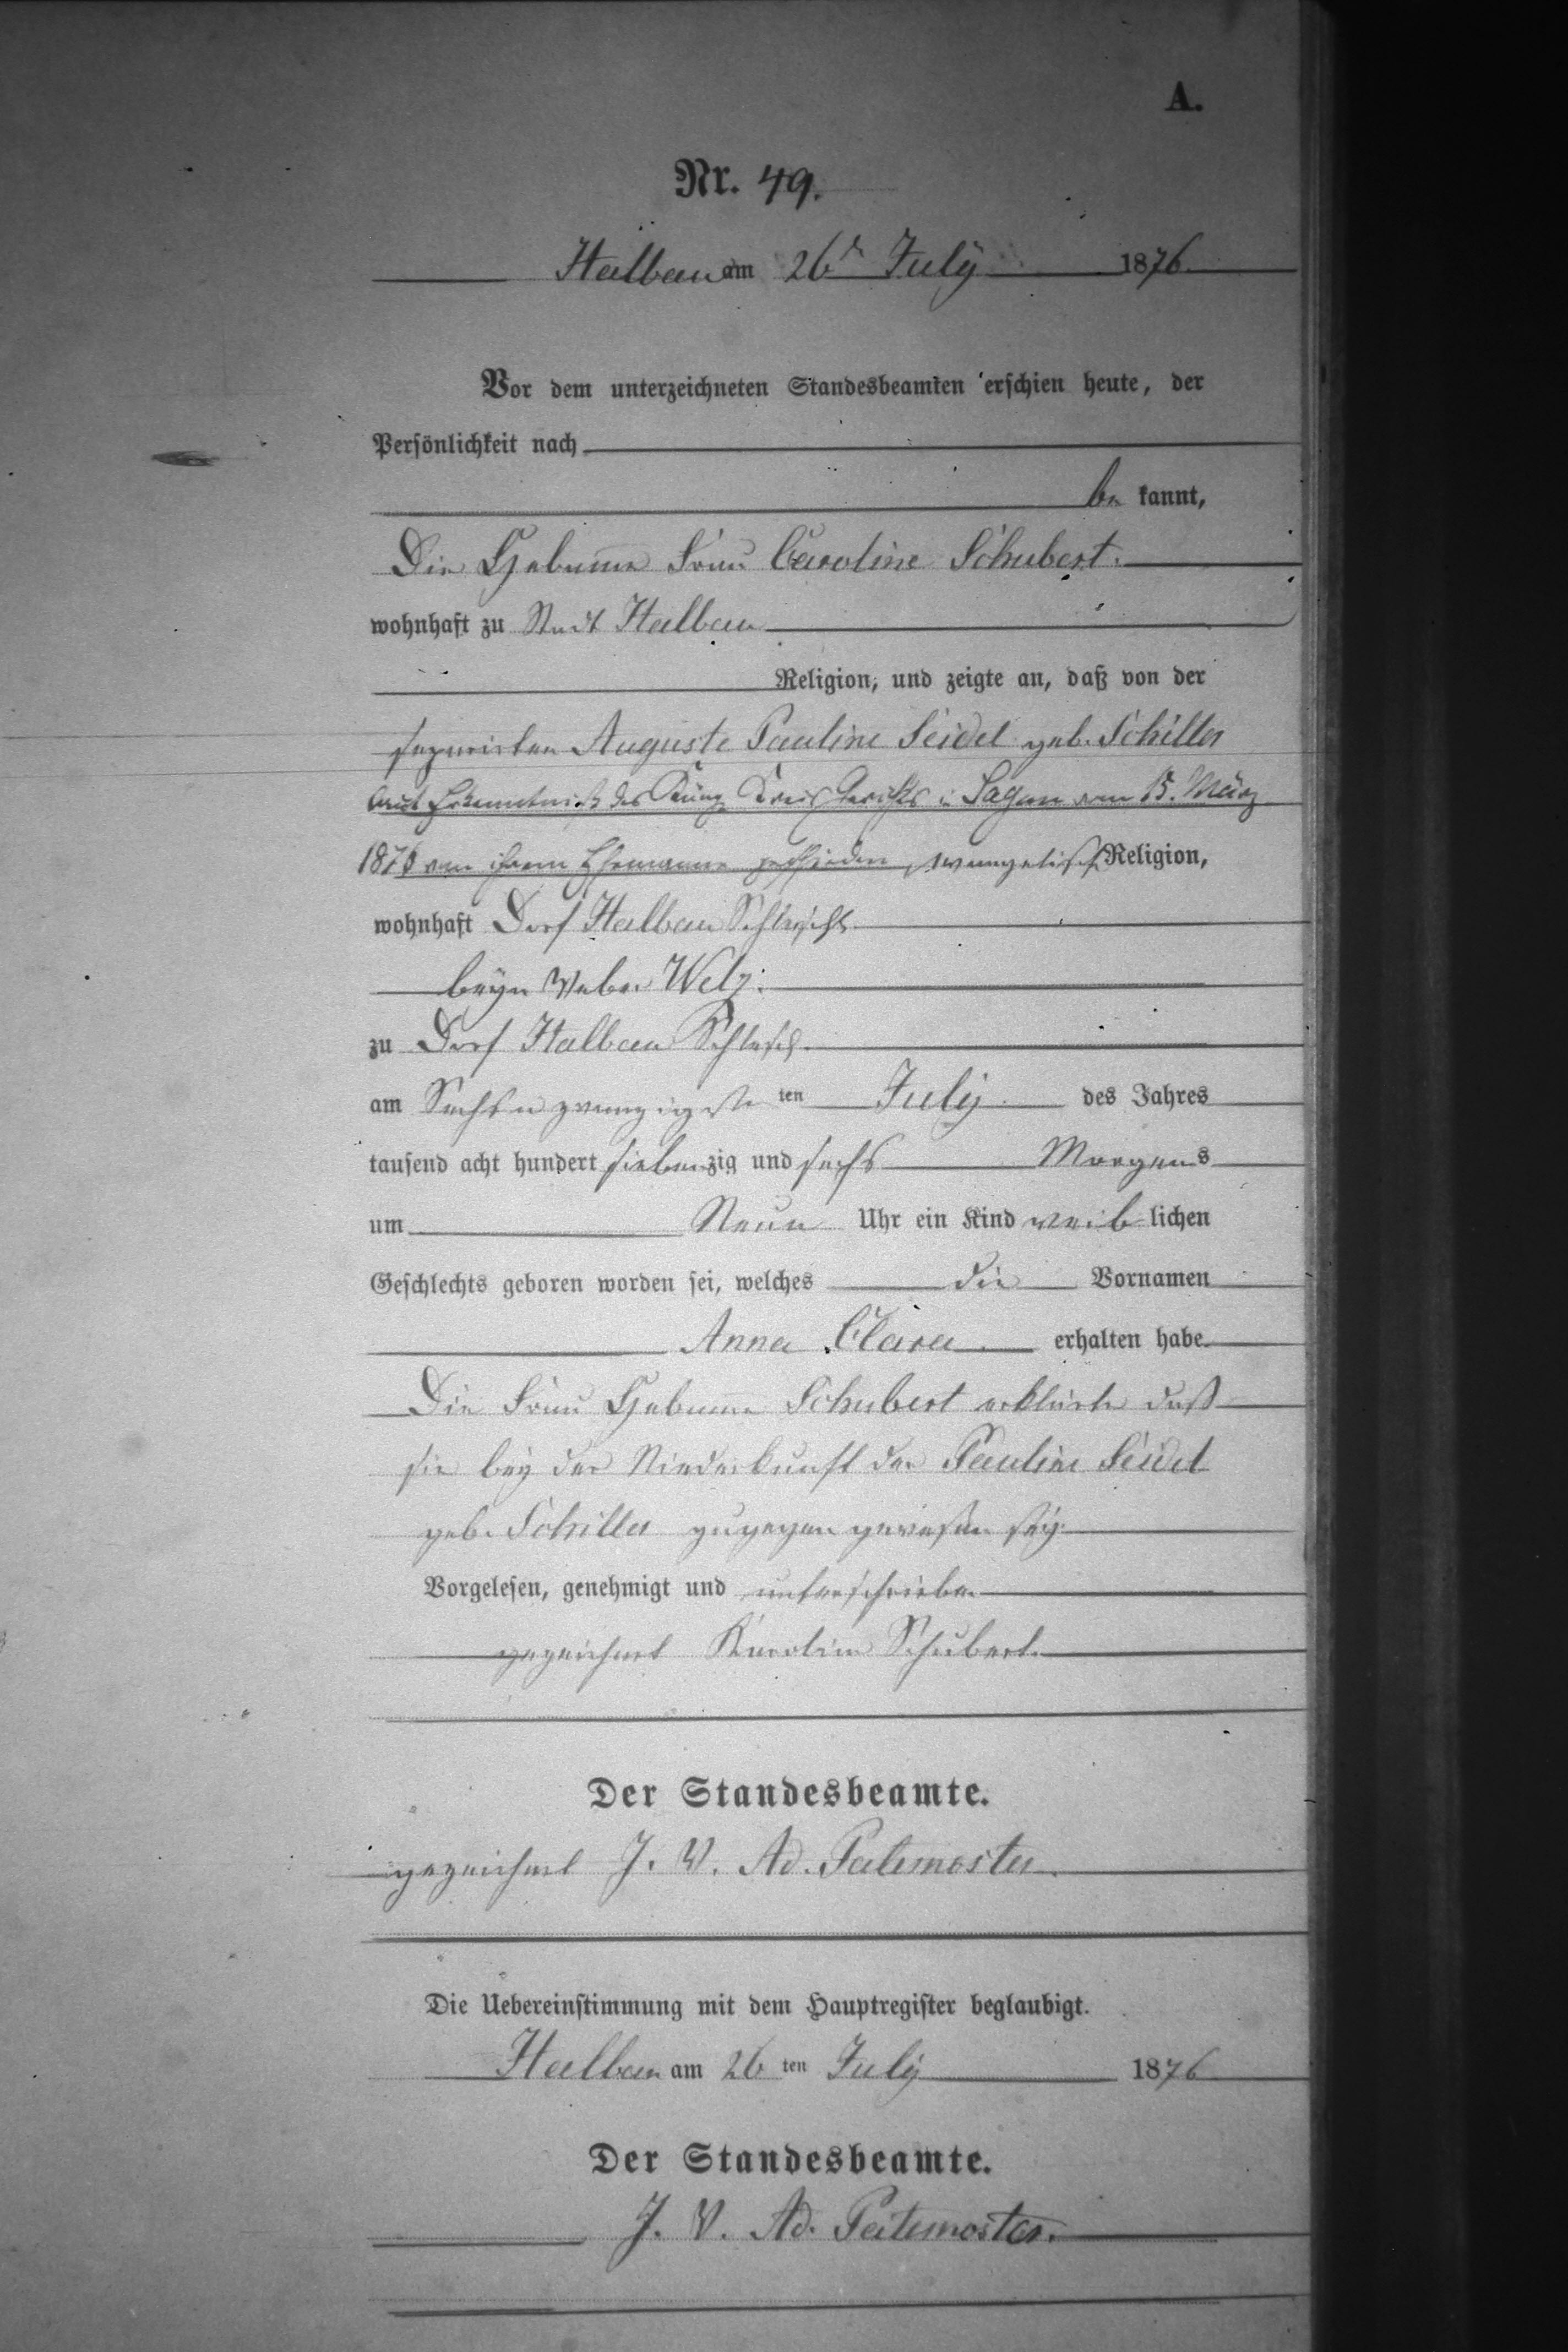 A.
Nr. 49.
Halbau am 26t July 1876.
Vor dem unterzeichneten Standesbeamten erschien heute, der
Persönlichkeit nach
be kannt,
Die Hebamme Frau Caroline Schubert.
wohnhaft zu Stadt Halbau
Religion, und zeigte an, daß von der
separirten Auguste Pauline Seidel geb. Schiller
laut Erkenntniß des Königl Kreis Gerichts in Sagan vom 15. März
1876 von ihrem Ehemanne geschieden, evangelisch Religion,
wohnhaft Dorf Halbau Schlesisch.
beym Weber Welz.
zu Dorf Halbau Schlesisch.
am Sechsundzwanzigsten ten July des Jahres
tausend acht hundert siebenzig und sechs Morgens
um Neun Uhr ein Kind weib lichen
Geschlechts geboren worden sei, welches die Vornamen
Anna Clara erhalten habe.
Die Frau Hebamme Schubert erklärte daß
sie bey der Niederkunft der Pauline Seidel
geb. Schiller zugegen gewesen sey.
Vorgelesen, genehmigt und unterschrieben
gezeichnet Karoline Schubert.
Der Standesbeamte.
gezeichnet J. V. Ad. Paternoster.
Die Uebereinstimmung mit dem Hauptregister beglaubigt.
Halbau am 26 ten July 1876
Der Standesbeamte.
J. V. Ad. Paternoster.